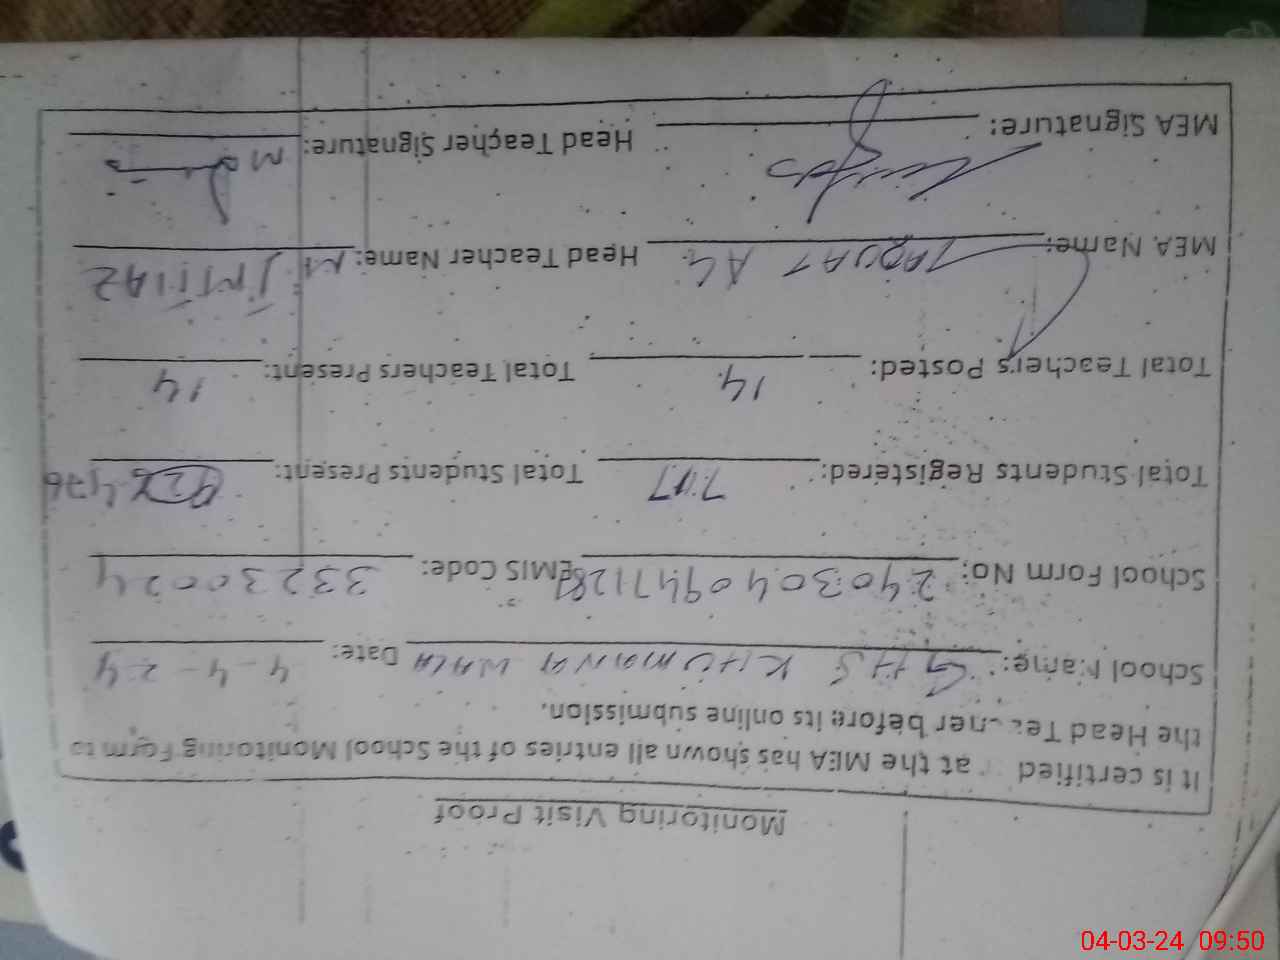 Monitoring Visit Proof
It is certified at the MEA has shown all entries of the School Monitoring Form to
the Head Teacher before its online submission.
School Name: GHS KHUMANA WALA Date: 4-4-24
School Form No: EMIS Code: 33230024
Total Students Registered: Total Students Present: 476
Total Teachers Posted: 14 Total Teachers Present: 14
MEA Name: Head Teacher Name: M IMTIAZ
MEA Signature: Head Teacher Signature:
04-03-24 09:50